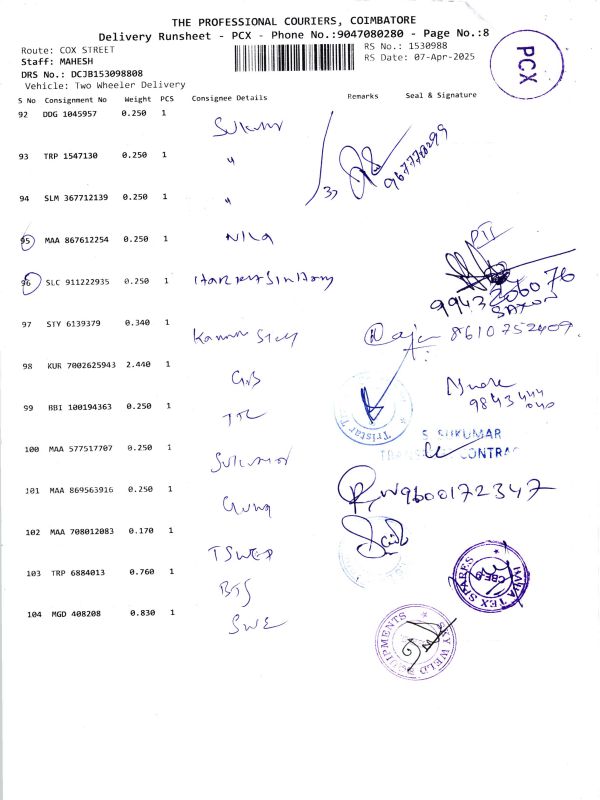 THE PROFESSIONAL COURIERS, COIMBATORE
Delivery Runsheet - PCX - Phone No.:9047080280 - Page No.:8
Route: COX STREET
RS No.: 1530988
Staff: MAHESH
RS Date: 07-Apr-2025
DRS No.: DCJB153098808
Vehicle: Two Wheeler Delivery
PCX
S No Consignment No Weight PCS Consignee Details Remarks Seal & Signature
92 DDG 1045957 0.250 1 Sukumar
93 TRP 1547130 0.250 1 "
94 SLM 367712139 0.250 1 "
95 MAA 867612254 0.250 1 Nila
96 SLC 911222935 0.250 1
9943206076
97 STY 6139379 0.340 1 Kannan
8610752409.
98 KUR 7002625943 2.440 1
9843444
040
99 BBI 100194363 0.250 1 TTC
Tristar
S SUKUMAR
100 MAA 577517707 0.250 1 Sukumar
101 MAA 869563916 0.250 1 Guna
9600172347
102 MAA 708012083 0.170 1
103 TRP 6884013 0.760 1 BTS
TEX SPARES
CBE-9
104 MGD 408208 0.830 1 SWE
SKY WELD EQUIPMENTS